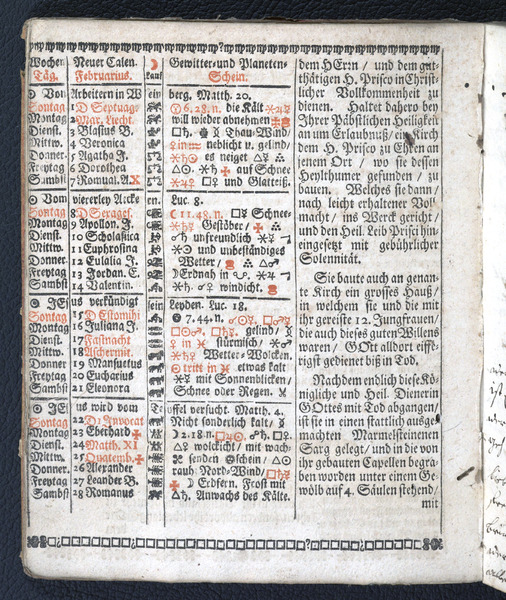 Wochen Neuer Calen. ☽ Gewitter- und Planeten-
Täg. Februarius. Lauf Schein.
☉ Von Arbeitern in Wein berg. Matth. 20.
Sontag 1 D Septuag. 6.28.n. die Kält
Montag 2 Mar. Liecht. will wieder abnehmen
Dienst. 3 Blasius B. Thau-Wind/
Mittw. 4 Veronica neblicht u. gelind/
Donner. 5 Agatha J. es neiget
Freytag 6 Dorothea auf Schnee
Sambst 7 Romual. A. X und Glatteiß.
☉ Vom viererley Acker. Luc. 8.
Sontag 8 D Sexages. ☾ 11.48.n. Schnee-
Montag 9 Apollon. J. Gestöber/
Dienst. 10 Scholastica unfreundlich
Mittw. 11 Euphrosina und unbeständiges
Donner. 12 Eulalia J. Wetter/
Freytag 13 Jordan. C. ☽ Erdnah in
Sambst 14 Valentin. windicht.
☉ JEsus verkündigt sein Leyden. Luc. 18.
Sontag 15 D Estomihi 7.44.n.
Montag 16 Juliana J. gelind/
Dienst. 17 Fastnacht in stürmisch/
Mittw. 18 Aschermit. Wetter-Wolcken.
Donner 19 Mansuetus ☉ tritt in ♓ etwas kalt
Freytag 20 Eucharius mit Sonnenblicken/
Sambst 21 Eleonora Schnee oder Regen.
☉ JEsus wird vom Teuffel versucht. Matth. 4.
Sontag 22 D Invocat Nicht sonderlich kalt/
Montag 23 Eberhard ☽ 2.18.n.
Dienst. 24 Matth. XI wolckicht/ mit wach-
Mittw. 25 Quatemb. senden Schein/
Donner. 26 Alexander rauh Nord-Wind/
Freytag 27 Leander B. ☽ Erdfern. Frost mit
Sambst 28 Romanus Anwachs des Kälte.
dem HErrn/ und dem gut-
thätigen H. Prisco in Christ-
licher Vollkommenheit zu
dienen. Haltet dahero bey
Ihrer Päbstlichen Heiligkeit
an um Erlaubniß/ ein Kirch
dem H. Prisco zu Ehren an
jenem Ort/ wo sie dessen
Heylthumer gefunden/ zu
bauen. Welches sie dann/
nach leicht erhaltener Voll
macht/ ins Werck gericht/
und den Heil. Leib Prisci hin
eingesetzt mit gebührlicher
Solennität.
Sie baute auch an genan-
te Kirch ein grosses Hauß/
in welchem sie und die mit
ihr gereiste 12. Jungfrauen/
die auch dieses guten Willens
waren/ GOtt alldort eiffe-
rigst gedienet biß in Tod.
Nachdem endlich diese Kö-
nigliche und Heil. Dienerin
GOttes mit Tod abgangen/
ist sie in einen stattlich ausge-
machten Marmelsteinenen
Sarg gelegt/ und in die von
ihr gebauten Capellen begra-
ben worden unter einem Ge-
wölb auf 4. Säulen stehend/
mit